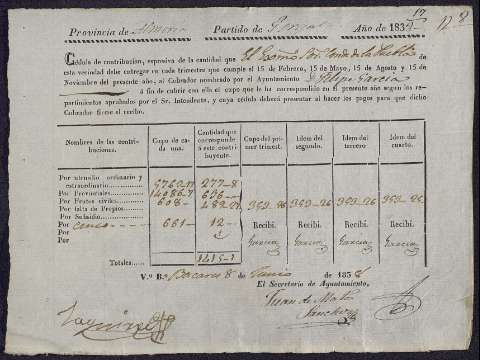 17
Provincia de Almeria Partido de Año de 183
Cédula de contribucion, espresiva de la cantidad que El Exmo. Sor. Conde de la Puebla
de esta vecindad debe entregar en cada trimestre que cumple el 15 de Febrero, 15 de Mayo, 15 de Agosto y 15 de
Noviembre del presente año, al Cobrador nombrado por el Ayuntamiento D. Felipe Garcia
á fin de cubrir con ella el cupo que le ha correspondido en el presente año segun los re-
partimientos aprobados por el Sr. Intendente, y cuya cédula deberá presentar al hacer los pagos para que dicho
Cobrador tiene el recibo.
Nombres de las contri-
buciones.
Cupo de ca-
da una.
Cantidad que
corresponde
á este contri-
buyente.
Cupo del pri-
mer trimest.
Idem del
segundo.
Idem del
tercero
Idem del
cuarto.
Por utensilio ordinario y
extraordinario 277-8
Por Provinciales 636
Por Frutos civiles 608
Por falta de Propios
Por Subsidio
Por censo 661 12
Por
Por
353-26 353-26 353-26 353-26
Recibí. Recibí. Recibí. Recibí.
Garcia Garcia Garcia Garcia
Totales 1415-1
V.º B.º Bacares 8 de Junio de 1838
El Secretario de Ayuntamiento,
Juan de Mata
Sanchez